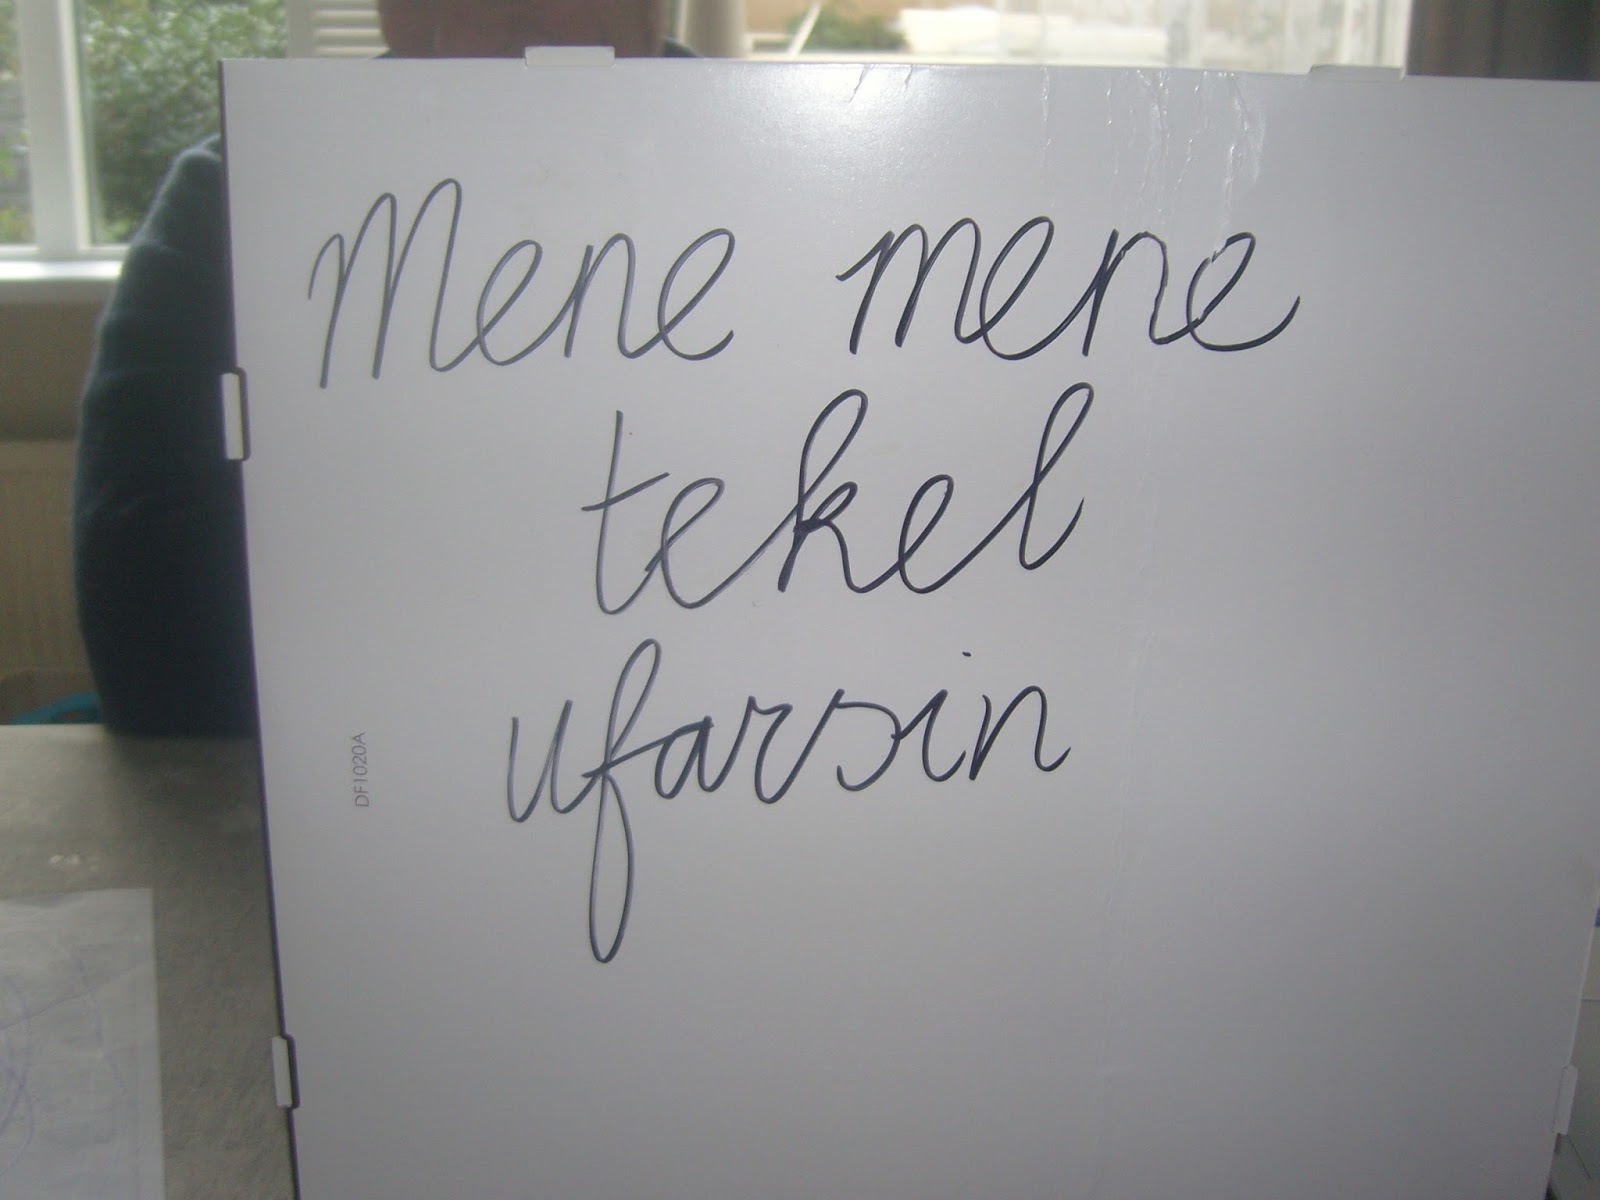 Mene mene
tekel
ufarsin
DF1020A